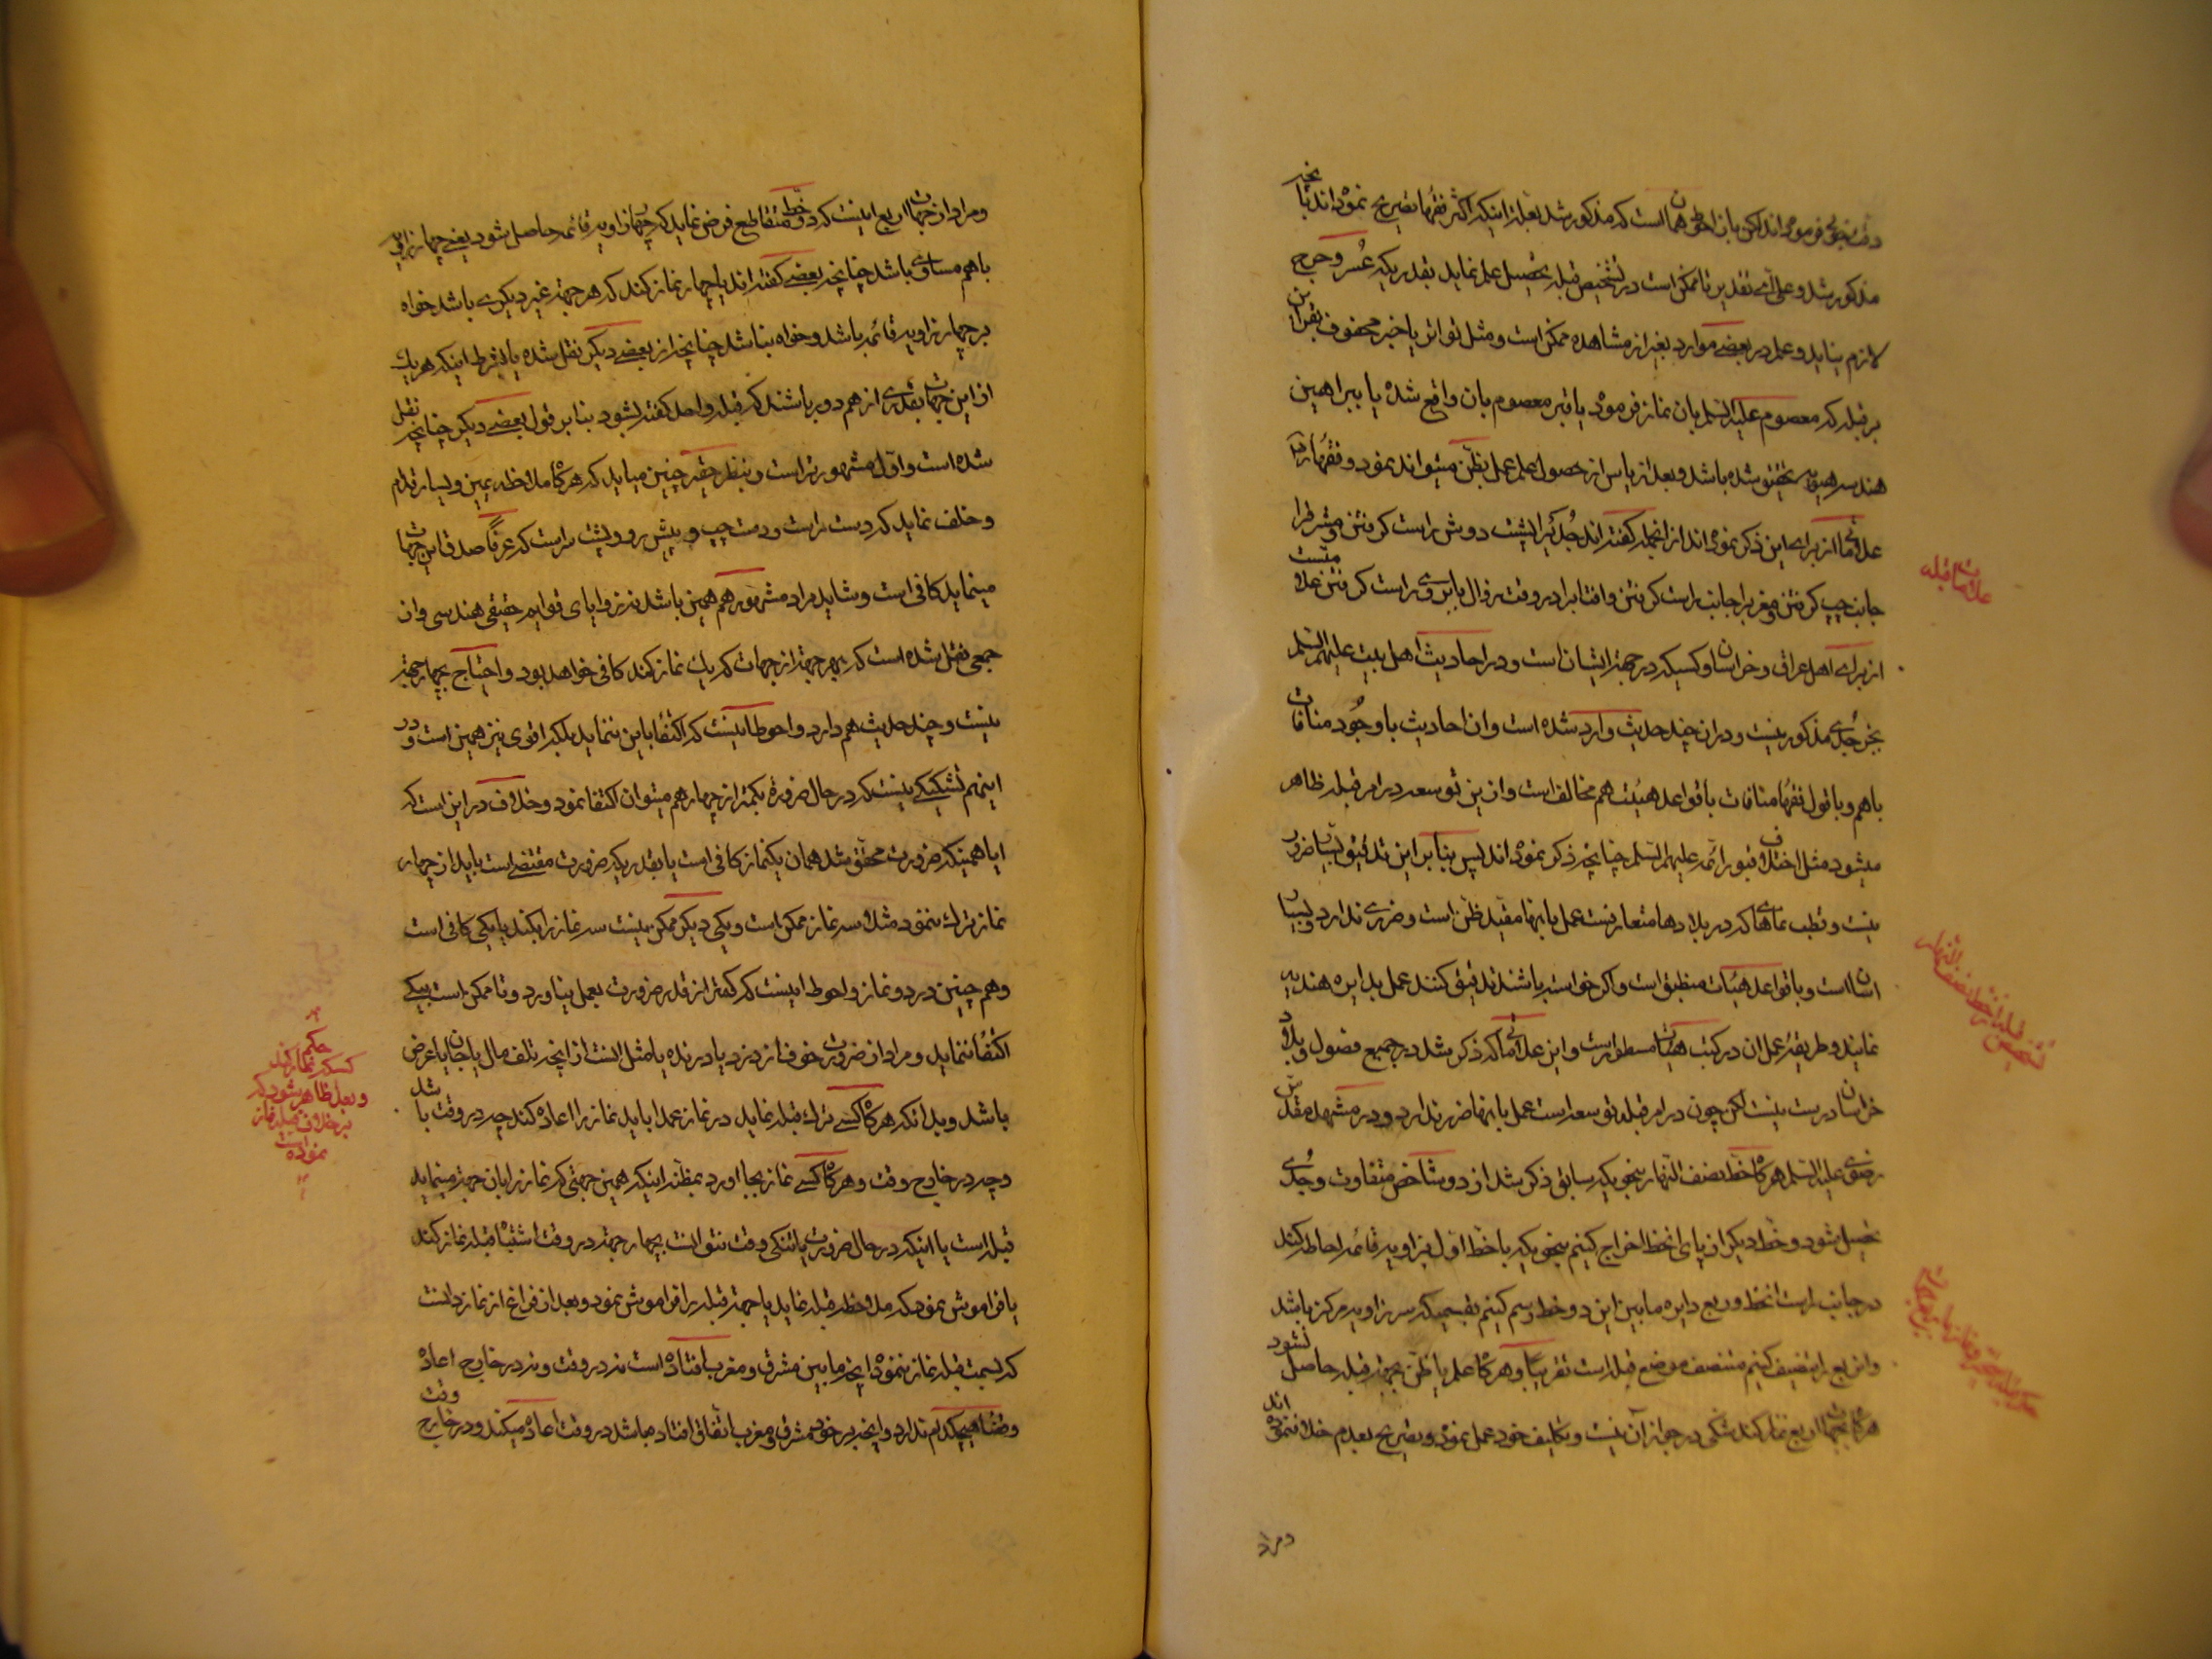 دقت بنحوی فرموده‌اند لکن بان احوط همان است که مذکور شد بعد از اینکه اکثر فقها تصریح نموده‌اند بآنچه
مذکور شد و علی ای تقدیر تا ممکن است در تشخیص قبله تحصیل علم نماید بقدریکه عسر و حرج
لازم نیاید و علم در بعضی موارد بغیر از مشاهده ممکن است و مثل تواتر یا خبر محفوف بقراین
بر قبله که معصوم علیه السلم بان نماز فرموده یا قبر معصوم بان واقع شده یا ببراهین
هندسیه تحقیق شده باشد و بعد از یاس از حصول علم عمل بظن میتواند نمود و فقها
علاماتی از برای این ذکر نموده‌اند از انجمله گفته‌اند جدی را پشت دوش راست کرفتن و مشرق را
جانب چپ کرفتن و مغرب را جانب راست کرفتن و افتاب را در وقت زوال بابروی راست کرفتن علامتست
از برای اهل عراق و خراسان و کسیکه در جهة ایشان است و در احادیث اهل بیت علیهم السلم
بجز جدی مذکور نیست و دران چند حدیث وارد شده است و ان احادیث با وجود منافات
باهم و با قول فقها منافات با قواعد هیئت هم مخالف است و ازین توسعه در امر قبله ظاهر
میشود مثل اختلاف قبور ائمه علیهم السلم چنانچه ذکر نموده‌اند پس بنابر این تدقیق بسیار ضرور
نیست و قطب نماهائی که در بلادها متعارفست عمل بانها مفید ظن است و ضرری ندارد و بسیار
اسان است و با قواعد هیئات منطبق است و اکر خواسته باشند تدقیق کنند عمل بدایره هندیه
نمایند و طریقه عمل ان در کتب هیئات مسطور است و این علاماتی که ذکر شد در جمیع فصول و بلاد
خراسان درست نیست لکن چون در امر قبله توسعه است عمل بانها ضرر ندارد و در مشهد مقدس
رضوی علیه السلم هرکاه خط نصف النهار بنحویکه سابق ذکر شد از دو شاخص متفاوت و جدی
تحصیل شود و خط دیکر از پای انخط اخراج کنیم بنحویکه با خط اول بزاویه قائمه احاطه کند
در جانب راست انخط و ربع دایره مابین این دو خط رسم کنیم بقسمیکه سر زاویه مرکز باشد
و این ربع را تنصیف کنیم منتصف موضع قبله است تقریبا و هرکاه علم یا ظن بجهة قبله حاصل نشود
هرکاه بجهات اربع نماز کند شکی در جواز آن نیست و بتکلیف خود عمل نموده و تصریح بعدم خلاف نموده‌اند
و مراد
علامات قبله
تشخیص قبله از خط نصف النهار
و مراد از جهات اربع اینست که دو خط متقاطع فرض نماید که چهار زاویه قائمه حاصل شود یعنی چهار زاویه
باهم مساوی باشد چنانچه بعضی کفته‌اند یا چهار نماز کند که هر جهة غیر دیکری باشد خواه
بر چهار زاویه قائمه باشد و خواه نباشد چنانچه از بعضی دیکر نقل شده یا بشرط اینکه هر یک
از این جهات بقدری از هم دور باشند که قبله واحد کفته نشود بنا بر قول بعضی دیکر چنانچه نقل
شده است و اول مشهورتر است و بنظر حقیر چنین میاید که هرکاه ملاحظه یمین و یسار قدام
و خلف نماید که دست راست و دست چپ و پیش رو و پشت سر است که عرفا صدق این جهات
مینماید کافی است و شاید مراد مشهور هم همین باشد نه زوایای قوایم حقیقی هندسی و از
جمعی نقل شده است که بهر جهة از جهات که یک نماز کند کافی خواهد بود و احتیاج بچهار جهة
نیست و چند حدیث هم دارد و احوط اینست که اکتفا باین ننماید بلکه اقوی نیز همین است و در
اینهم تشکیکی نیست که در حال ضرورة بکمتر از چهار هم میتوان اکتفا نمود و خلاف در این است که
ایا همینکه ضرورت محقق شد همان یکنماز کافی است یا بقدریکه ضرورت مقتضی است باید از چهار
نماز ترک نمود مثلا سه نماز ممکن است و یکی دیکر ممکن نیست سه نماز را بکند یا یکی کافی است
و هم چنین در دو نماز و احوط اینست که کمتر از قدر ضرورت بعمل نیاورد و تا ممکن است بیکی
اکتفا ننماید و مراد از ضرورت خوف از دزد یا درنده یا مثل انست از انچه تلف مال یا جان یا عرض
باشد و بدانکه هرکاه کسی ترک قبله نماید در نماز عمدا باید نماز را اعاده کند چه در وقت باشد
و چه در خارج وقت و هرکاه کسی نماز بجا اورد بمظنه اینکه همین جهتی که نماز را بان جهة مینماید
قبله است یا اینکه در حال ضرورت یا تنکی وقت نتوانست بچهار جهة در وقت اشتباه قبله نماز کند
یا فراموش نمود که ملاحظه قبله نماید یا جهة قبله را فراموش نمود و بعد از فراغ از نماز دانست
که بسمت قبله نماز ننموده انچه مابین مشرق و مغرب افتاده است نه در وقت و نه در خارج اعاده
و قضا هیچکدام ندارد و انچه بر خود مشرق و مغرب اتفاق افتاده باشد در وقت اعاده میکند و در خارج وقت
حکم
کسیکه نماز کند
و بعد ظاهر شود که
بر خلاف قبله نماز
نموده است